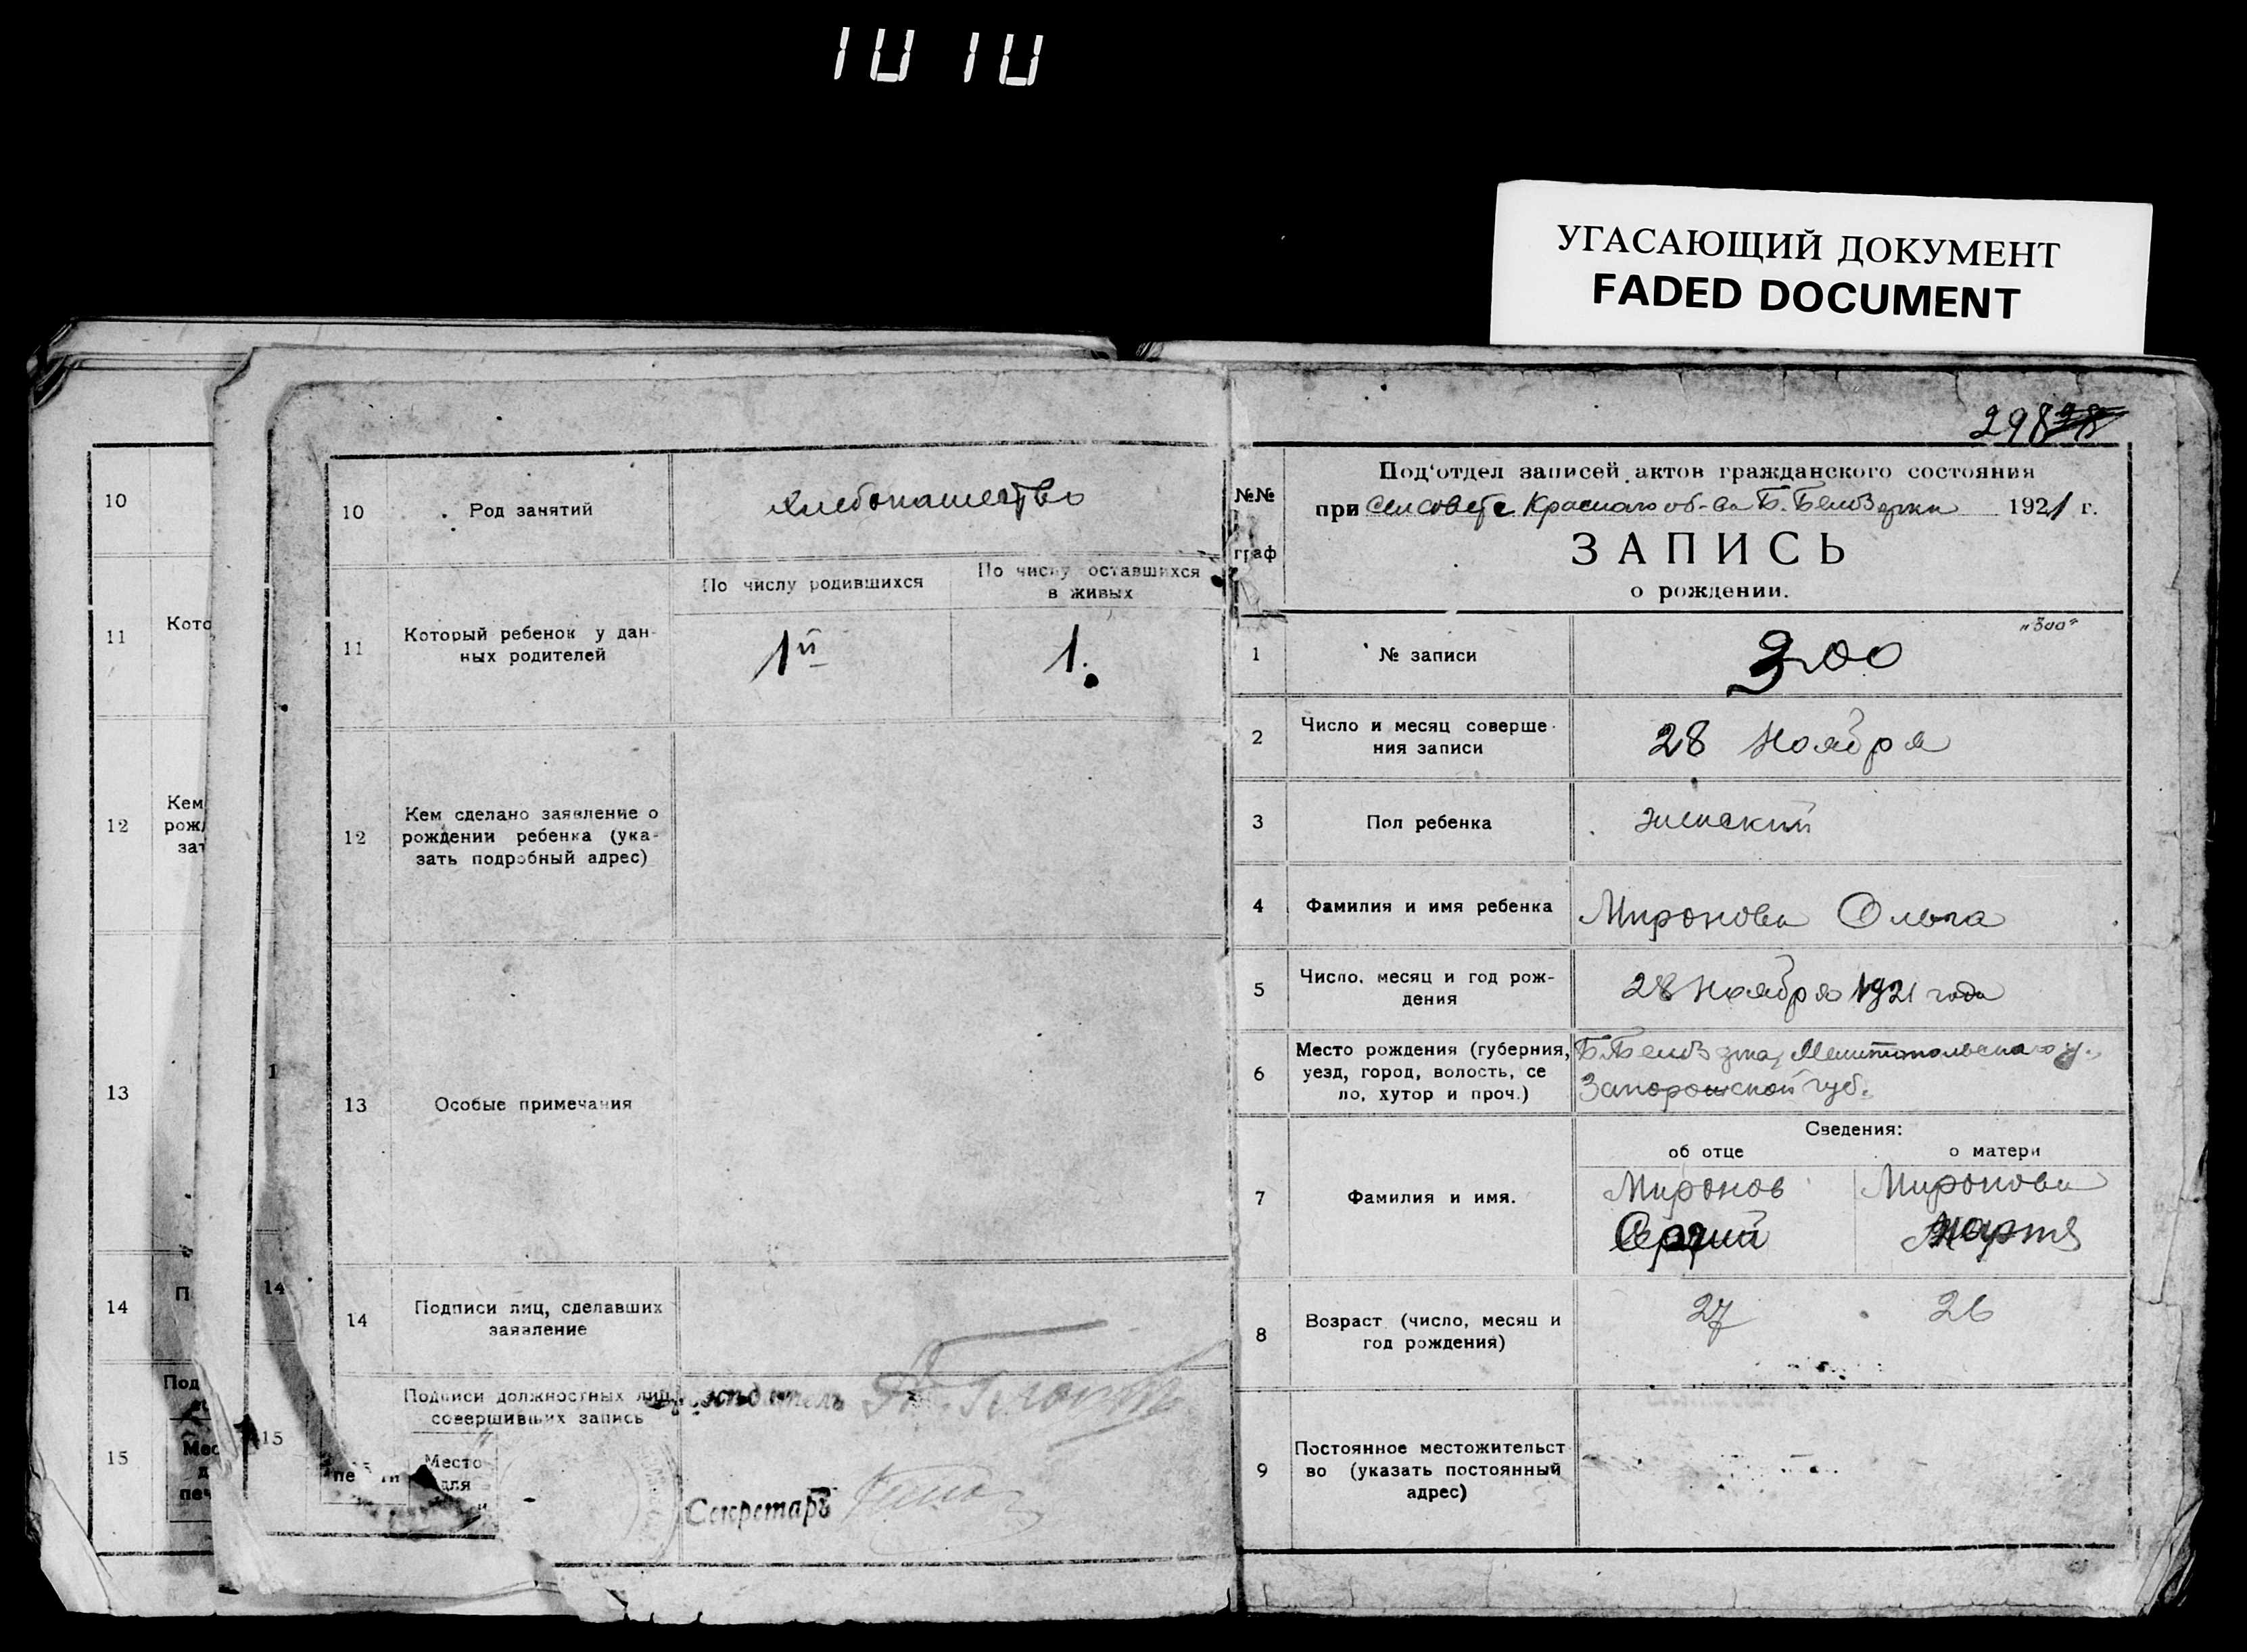 УГАСАЮЩИЙ ДОКУМЕНТ
FADED DOCUMENT
10
11
Кото
12
Кем
рожд
зат
13
14
П
Под
15
Мес
д
печ
1
14
15
10
Род занятий
хлебопашество
11
Который ребенок у дан-
ных родителей
По числу родившихся
По числу оставшихся
в живых
1й
1.
12
Кем сделано заявление о
рождении ребенка (ука-
зать подробный адрес)
13
Особые примечания
14
Подписи лиц, сделавших
заявление
Подписи должностных лиц,
совершивших запись
Место
для
Секретарь
298
№№
граф
Под'отдел записей актов гражданского состояния
при сельсовете Краснаго об-ва Б. Белозерки 1921 г.
ЗАПИСЬ
о рождении.
1
№ записи
300
"300"
2
Число и месяц соверше-
ния записи
28 Ноября
3
Пол ребенка
женский
4
Фамилия и имя ребенка
Миронова Ольга
5
Число, месяц и год рож-
дения
28 Ноября 1921 года
6
Место рождения (губерния,
уезд, город, волость, се
ло, хутор и проч.)
Б. Белозерка, Мелитопольскаго у.,
Запорожской губ.
Сведения:
об отце
о матери
7
Фамилия и имя.
Миронов
Сергий
Миронова
Марта
8
Возраст (число, месяц и
год рождения)
27
26
9
Постоянное местожительст
во (указать постоянный
адрес)